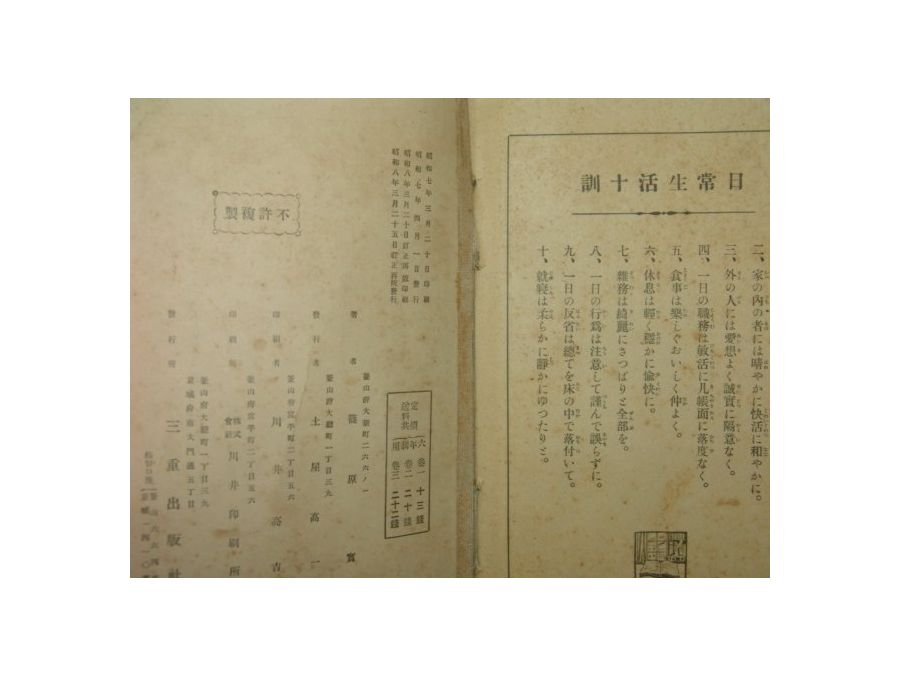 日常生活十訓
二、家の内の者には晴やかに快活に和やかに。
三、外の人には愛想よく誠實に陽意なく。
四、一日の職務は敏活に几帳面に落度なく。
五、食事は樂しくおいしく仲よく。
六、休息は輕く穩かに愉快に。
七、雜務は綺麗にさつぱりと全部を。
八、一日の行爲は注意して謹んで誤らずに。
九、一日の反省は總てを床の中で落付いて。
十、就寢は柔らかに靜かにゆつたりと。
昭和七年三月二十日印刷
昭和七年四月一日發行
昭和八年三月二十日訂正再版印刷
昭和八年三月二十五日訂正再版發行
不許複製
定價
送料共
六年前用
卷一 十三錢
卷二 二十錢
卷三 二十二錢
釜山府大廳町二六六ノ一
著者 篠原實
釜山府大廳町一丁目三九
發行者 土屋高一
釜山府富平町二丁目五六
印刷者 川井高吉
釜山府富平町二丁目五六
印刷所 株式會社川井印刷所
釜山府大廳町一丁目三九
京城府南大門通五丁目
發行所 三重出版社